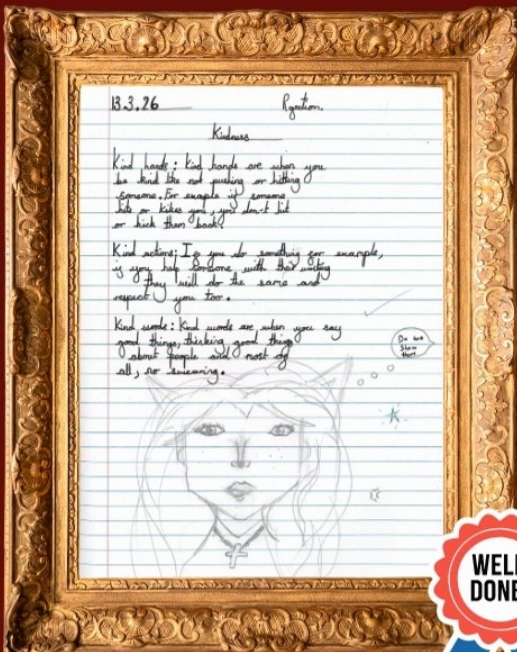 13.3.26 Rejection.
Kindness
Kind hands: Kind hands are when you
be kind like not pushing or hitting
someone. For example if someone
hits or kikes you, you don't hit
or kick them back?
Kind actions: If you do something for example,
if you help someone with their writing
they will do the same and
respect you too.
Kind words: Kind words are when you say
good things, thinking good things
about people and most of
all, no swearing.
Do we
Show
them
WELL
DONE